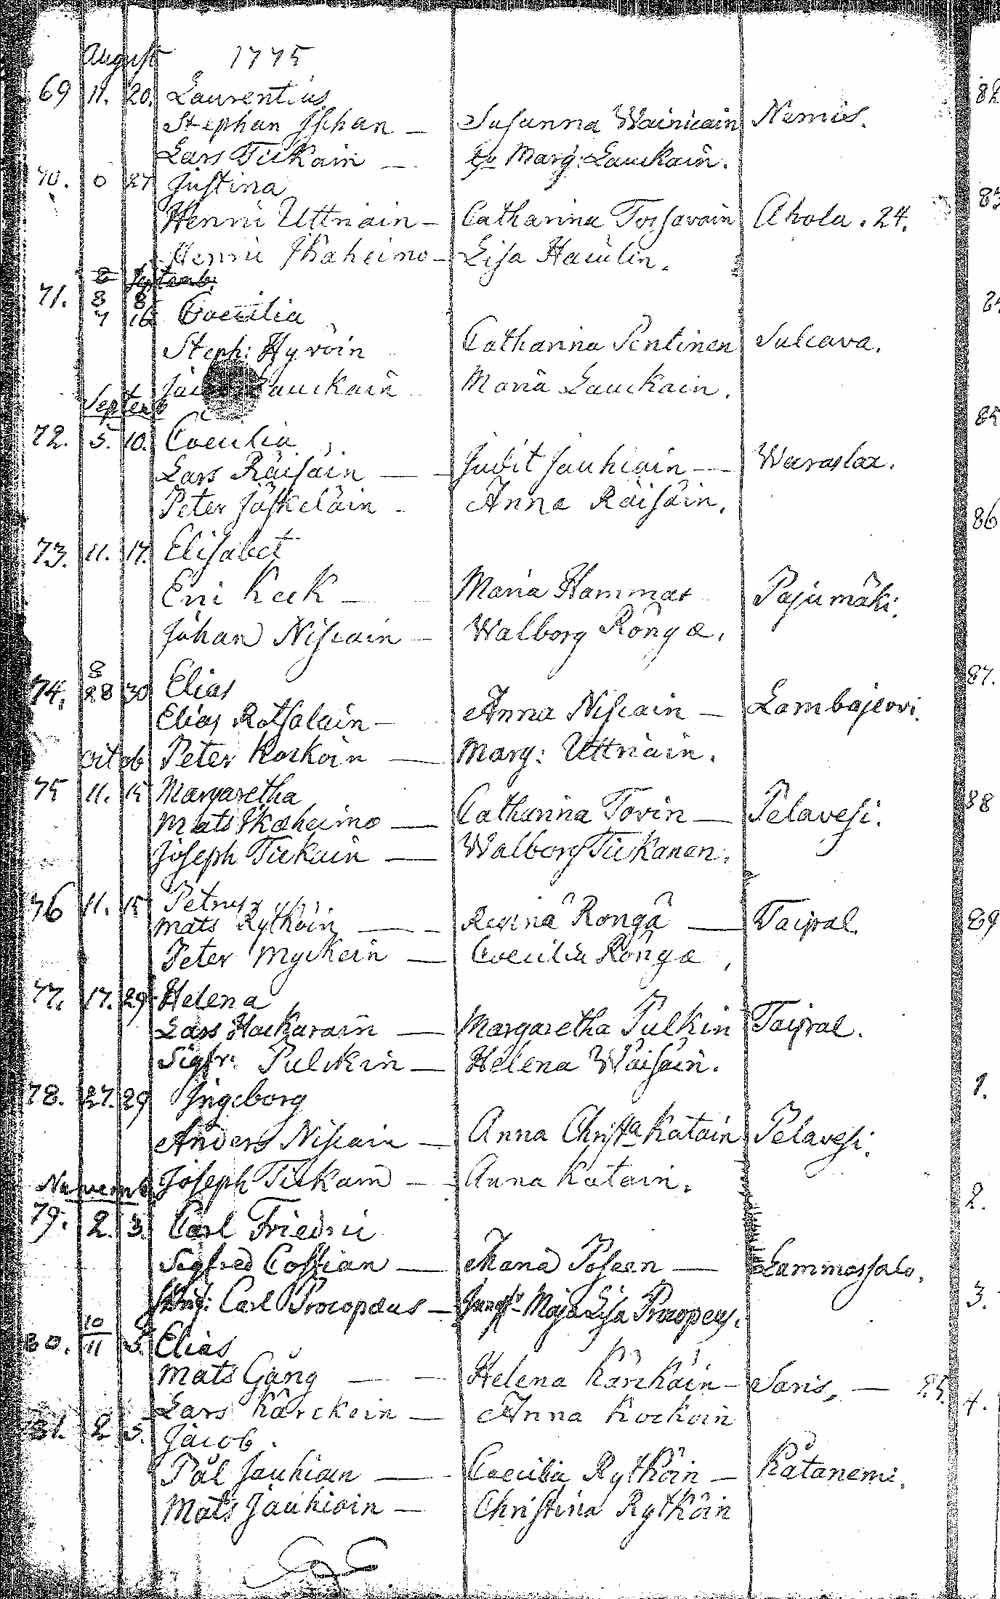 August 1775
69 11. 20. Laurentius
Stephan Ijchan — Susanna Wainicain Nemis.
Lars Tickain — Marg: Lauckain.
70. 0 27 Justina
Henric Uttriain — Catharina Torsavain Ahola. 24.
Henric Ikäheimo — Lisa Haulin.
Septemb:
71. 8 8
7 16 Coecilia
Steph: Hyvöin Catharina Pentinen Sulcava.
Lauckain Maria Lauckain.
Septemb
72. 5. 10. Coecilia
Lars Räisäin — Judit Jauhiain — Waraslax.
Peter Jäskeläin — Anna Räisäin.
73. 11. 17. Elisabet
Eric Keck — Maria Hammar Pajumäki.
Johan Niscain — Walborg Röngæ.
8
74. 28 30 Elias
Elias Rotsalain — Anna Niscain — Lambajervi.
Octob Peter Korkoin — Marg: Uttriain.
75 11. 15 Margaretha
Mats Ikæheimo — Catharina Tovin — Pelavesi.
Joseph Tickain — Walborg Tickanen.
76 11. 15 Petrus
Mats Rytköin — Regina Rongä — Taipal.
Peter Myckein — Coecilia Röngæ,
77. 17. 29 Helena
Lars Hackarain — Margaretha Pulkin Taipal.
Sigfr: Pulckin — Helena Wäisäin.
78. 27. 29 Ingeborg
Anders Niscain — Anna Christa Katain Pelavesi.
Novemb Joseph Tickain — Anna Katain.
79. 2. 3. Carl Friedric
Sigfred Cossian — Maria Poseen — Lammassalo.
Carl Procopæus — Jungfr Maja Lisa Procopeus.
10
80. 11 5. Elias
Mats Gång — Helena Kärckäin — Saris, — 25.
Lars Kärckein — Anna Kockoin
81. 2 5. Jacob.
Pål Jauhian — Coecilia Rytköin — Kåtanemi.
Mats Jauhiain — Christina Rytköin
82
83
85
86
87.
88
89
1.
2.
3.
4.